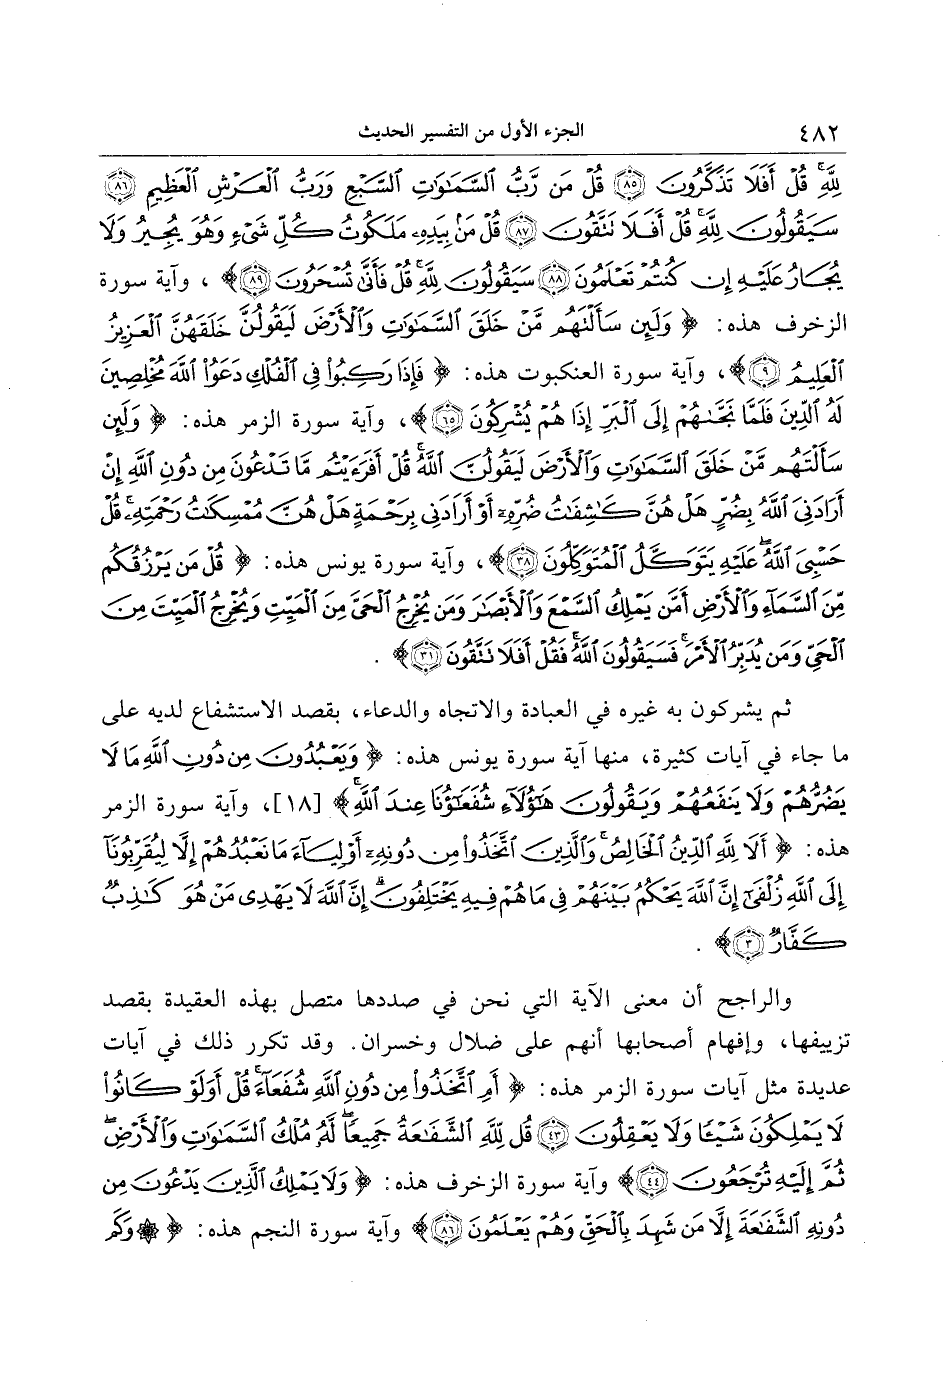 ٤٨٢ الجزء الأول من التفسير الحديث
لِلَّهِ قُلْ أَفَلَا تَذَكَّرُونَ ٨٥ قُلْ مَن رَّبُّ السَّمَاوَاتِ السَّبْعِ وَرَبُّ الْعَرْشِ الْعَظِيمِ ٨٦
سَيَقُولُونَ لِلَّهِ قُلْ أَفَلَا تَتَّقُونَ ٨٧ قُلْ مَنْ بِيَدِهِ مَلَكُوتُ كُلِّ شَيْءٍ وَهُوَ يُجِيرُ وَلَا
يُجَارُ عَلَيْهِ إِن كُنتُمْ تَعْلَمُونَ ٨٨ سَيَقُولُونَ لِلَّهِ قُلْ فَأَنَّىٰ تُسْحَرُونَ ٨٩﴾ ، وآية سورة
الزخرف هذه: ﴿وَلَئِن سَأَلْتَهُم مَّنْ خَلَقَ السَّمَاوَاتِ وَالْأَرْضَ لَيَقُولُنَّ خَلَقَهُنَّ الْعَزِيزُ
الْعَلِيمُ ٩﴾، وآية سورة العنكبوت هذه: ﴿فَإِذَا رَكِبُوا فِي الْفُلْكِ دَعَوُا اللَّهَ مُخْلِصِينَ
لَهُ الدِّينَ فَلَمَّا نَجَّاهُمْ إِلَى الْبَرِّ إِذَا هُمْ يُشْرِكُونَ ٦٥﴾، وآية سورة الزمر هذه: ﴿وَلَئِن
سَأَلْتَهُم مَّنْ خَلَقَ السَّمَاوَاتِ وَالْأَرْضَ لَيَقُولُنَّ اللَّهُ قُلْ أَفَرَءَيْتُم مَّا تَدْعُونَ مِن دُونِ اللَّهِ إِنْ
أَرَادَنِيَ اللَّهُ بِضُرٍّ هَلْ هُنَّ كَاشِفَاتُ ضُرِّهِ أَوْ أَرَادَنِي بِرَحْمَةٍ هَلْ هُنَّ مُمْسِكَاتُ رَحْمَتِهِ قُلْ
حَسْبِيَ اللَّهُ عَلَيْهِ يَتَوَكَّلُ الْمُتَوَكِّلُونَ ٣٨﴾، وآية سورة يونس هذه: ﴿قُلْ مَن يَرْزُقُكُم
مِّنَ السَّمَاءِ وَالْأَرْضِ أَمَّن يَمْلِكُ السَّمْعَ وَالْأَبْصَارَ وَمَن يُخْرِجُ الْحَيَّ مِنَ الْمَيِّتِ وَيُخْرِجُ الْمَيِّتَ مِنَ
الْحَيِّ وَمَن يُدَبِّرُ الْأَمْرَ فَسَيَقُولُونَ اللَّهُ فَقُلْ أَفَلَا تَتَّقُونَ ٣١﴾ .
ثم يشركون به غيره في العبادة والاتجاه والدعاء، بقصد الاستشفاع لديه على
ما جاء في آيات كثيرة، منها آية سورة يونس هذه: ﴿وَيَعْبُدُونَ مِن دُونِ اللَّهِ مَا لَا
يَضُرُّهُمْ وَلَا يَنفَعُهُمْ وَيَقُولُونَ هَؤُلَاءِ شُفَعَاؤُنَا عِندَ اللَّهِ﴾ [١٨]، وآية سورة الزمر
هذه: ﴿أَلَا لِلَّهِ الدِّينُ الْخَالِصُ وَالَّذِينَ اتَّخَذُوا مِن دُونِهِ أَوْلِيَاءَ مَا نَعْبُدُهُمْ إِلَّا لِيُقَرِّبُونَا
إِلَى اللَّهِ زُلْفَىٰ إِنَّ اللَّهَ يَحْكُمُ بَيْنَهُمْ فِي مَا هُمْ فِيهِ يَخْتَلِفُونَ إِنَّ اللَّهَ لَا يَهْدِي مَنْ هُوَ كَاذِبٌ
كَفَّارٌ ٣﴾ .
والراجح أن معنى الآية التي نحن في صددها متصل بهذه العقيدة بقصد
تزييفها، وإفهام أصحابها أنهم على ضلال وخسران. وقد تكرر ذلك في آيات
عديدة مثل آيات سورة الزمر هذه: ﴿أَمِ اتَّخَذُوا مِن دُونِ اللَّهِ شُفَعَاءَ قُلْ أَوَلَوْ كَانُوا
لَا يَمْلِكُونَ شَيْئًا وَلَا يَعْقِلُونَ ٤٣ قُل لِّلَّهِ الشَّفَاعَةُ جَمِيعًا لَّهُ مُلْكُ السَّمَاوَاتِ وَالْأَرْضِ
ثُمَّ إِلَيْهِ تُرْجَعُونَ ٤٤﴾ وآية سورة الزخرف هذه: ﴿وَلَا يَمْلِكُ الَّذِينَ يَدْعُونَ مِن
دُونِهِ الشَّفَاعَةَ إِلَّا مَن شَهِدَ بِالْحَقِّ وَهُمْ يَعْلَمُونَ ٨٦﴾ وآية سورة النجم هذه: ﴿۞ وَكَم